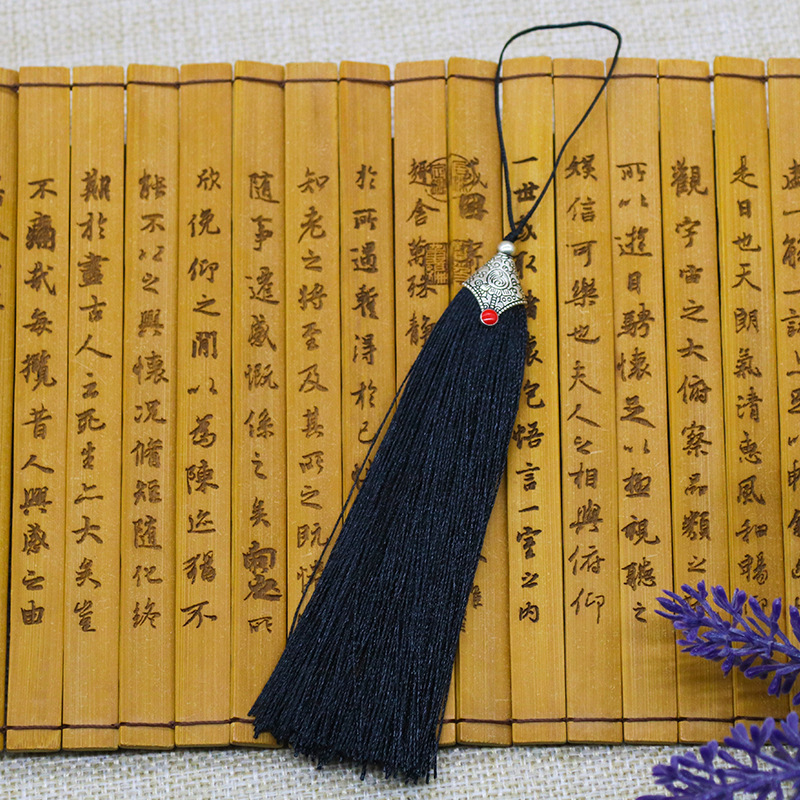 盛一觴一詠亦足以暢敘幽
是日也天朗氣清惠風和暢
觀宇宙之大俯察品類之
所以遊目騁懷足以極視聽之
娛信可樂也夫人之相與俯仰
一世或取諸懷抱悟言一室之內
或因寄
趣舍萬殊靜
於所遇暫得於己
知老之將至及其所之既倦
隨事遷感慨係之矣向之所
欣俛仰之閒以為陳迹猶不
能不以之興懷況脩短隨化終
期於盡古人云死生亦大矣豈
不痛哉每攬昔人興感之由